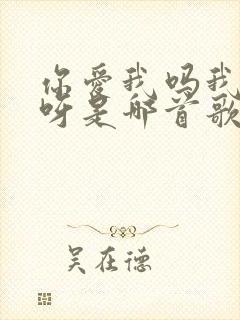 你爱我吗我
呀是那首歌
吴在德